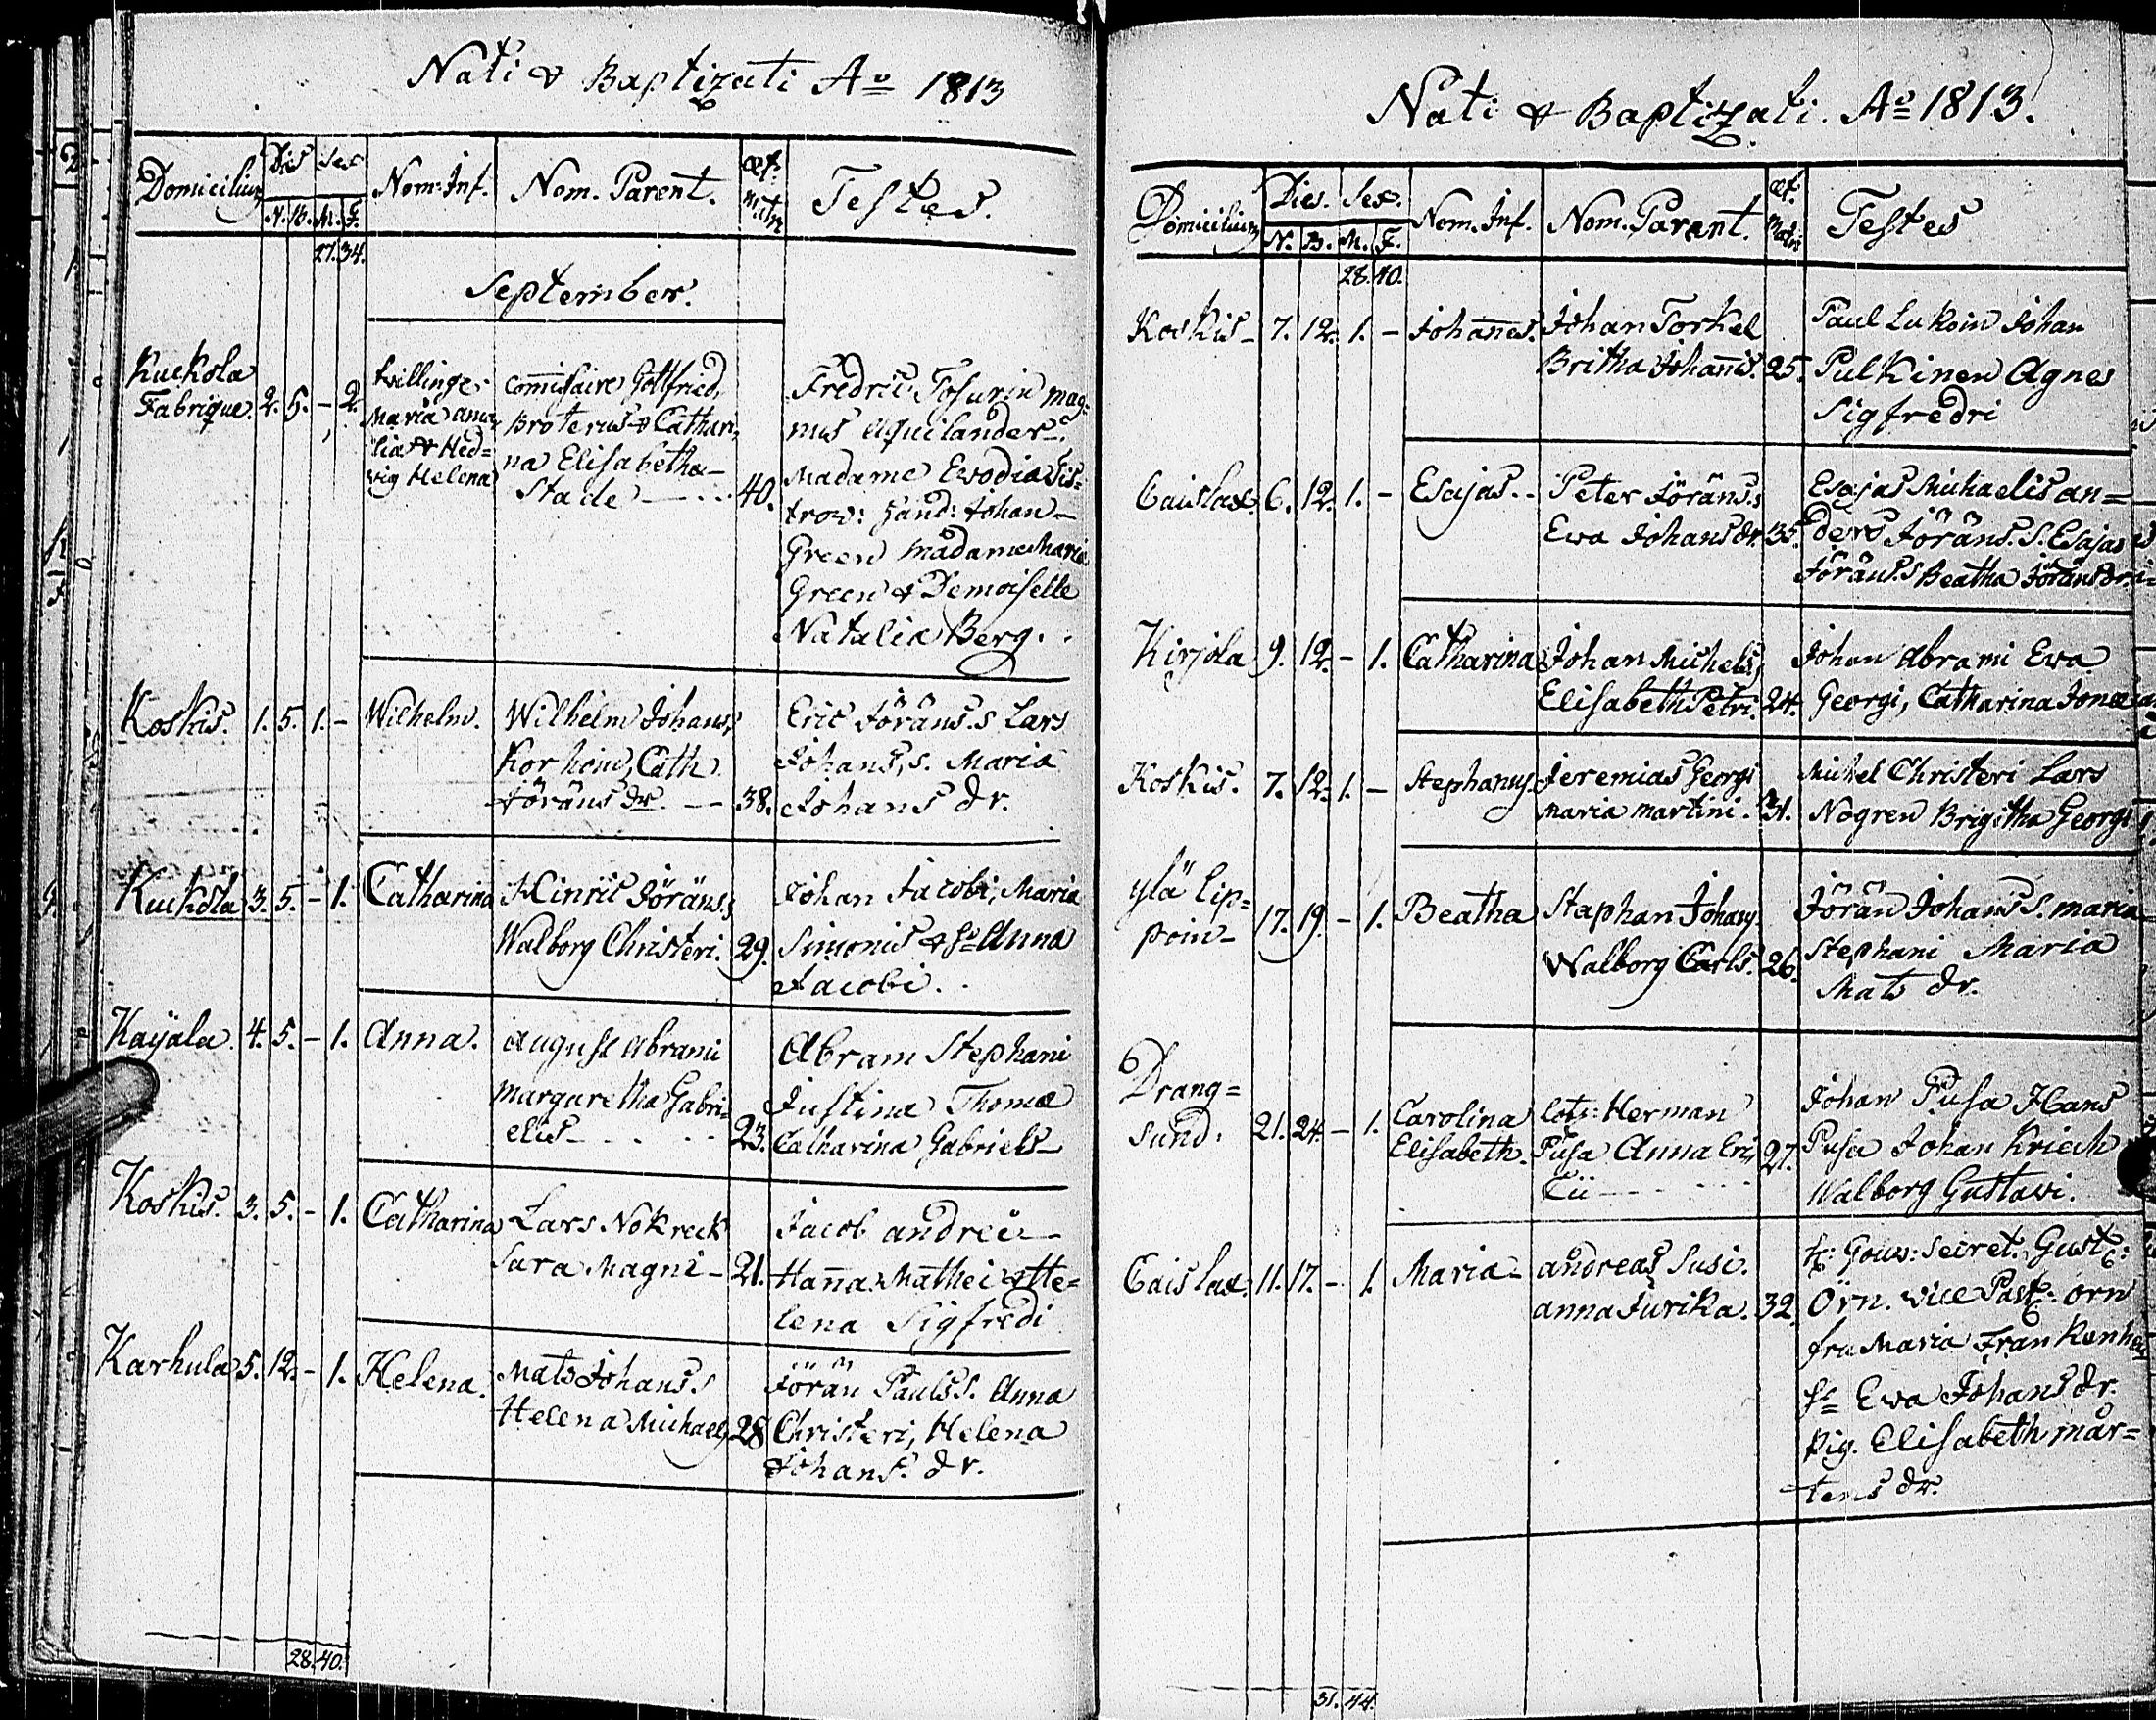 Nati & Baptizati Ao 1813
Domicilium Dies Sex Nom. Inf. Nom. Parent. æt. Matr. Testes.
N. B. M. F.
27. 34.
September.
Kuckola
Fabrique. 2. 5. – 2.
tvillingar
Maria ama=
lia & Hed=
vig Helena
Commissaire Gottfried
Broterus & Cathari=
na Elisabetha
Stade 40.
Fredric Tosurin mag=
nus Aquilander.
Madame Ewodia Sis=
trow: Hand: Johan
Green Madame Maria
Green & Demoiselle
Natalia Berg.
Koskis. 1. 5. 1. – Wilhelm.
Wilhelm Johans.
Korhoin, Cath.
Jöräns dr. 38.
Eric Jöräns. s Lars
Johans. s. Maria
Johans dr.
Kuckola 3. 5. – 1. Catharina
Hinric Jöräns. s
Walborg Christeri. 29.
Johan Jacobi, Maria
Simonis & hu Anna
Jacobi.
Kaijala. 4. 5. – 1. Anna.
August Abrami
Margaretha Gabri=
elis 23.
Abram Stephani
Justina Thomæ
Catharina Gabriels
Koskis. 3. 5. – 1. Catharina
Lars Nokreck
Sara Magni – 21.
Jacob andreæ
Hanna Mathei & He=
lena Sigfredi
Karhula 5. 12. – 1. Helena.
Mats Johans. s
Helena Michaels. 28
Jörän Pauls s. Anna
Christeri, Helena
Johans. dr.
28. 40.
Nati & Baptizati. Ao 1813.
Domicilium Dies. Sex. Nom. Inf. Nom. Parent. æt. Matr. Testes
N. B. M. F.
28. 40.
Koskis – 7. 12. 1. – Johannes.
Johan Torkel
Britha Johannis. 25.
Paul Lukoin Johan
Pulkinen Agnes
Sigfredri
Caislax. 6. 12. 1. – Esajas.
Peter Jöräns. s
Ewa Johans dr. 35.
Esajas Michaelis an=
ders Jöräns. s. Esajas
Jöräns. s Beatha Jöräns dr.
Kirjola 9. 12. – 1. Catharina
Johan Michels.
Elisabeth Petri. 24.
Johan Abrami Ewa
Georgi, Catharina Jonæ
Koskis. 7. 12. 1. – Stephanus.
Jeremias Georgi
Maria Martini. 31.
Michel Christeri Lars
Nogren Brigitha Georgi
Ylä Lip=
poin – 17. 19. – 1. Beatha
Staphan Johans.
Walborg Carls. 26.
Jörän Johans s. Maria
Stephani Maria
Mats dr.
Drang=
sund. 21. 24. – 1.
Carolina
Elisabeth.
Lots: Herman
Pusa Anna Eri=
cii 27.
Johan Pusa Hans
Pusa Johan Kriech
Walborg Gustavi.
Caislax. 11. 17. – 1. Maria
andreas Susi.
anna Jurika. 32.
H: Gouv: Secret. Gust:
Örn. Vice Past: Örn
fru Maria Frankenhe
hu Ewa Johans dr.
Pig. Elisabeth Mår=
tens dr.
31. 44.